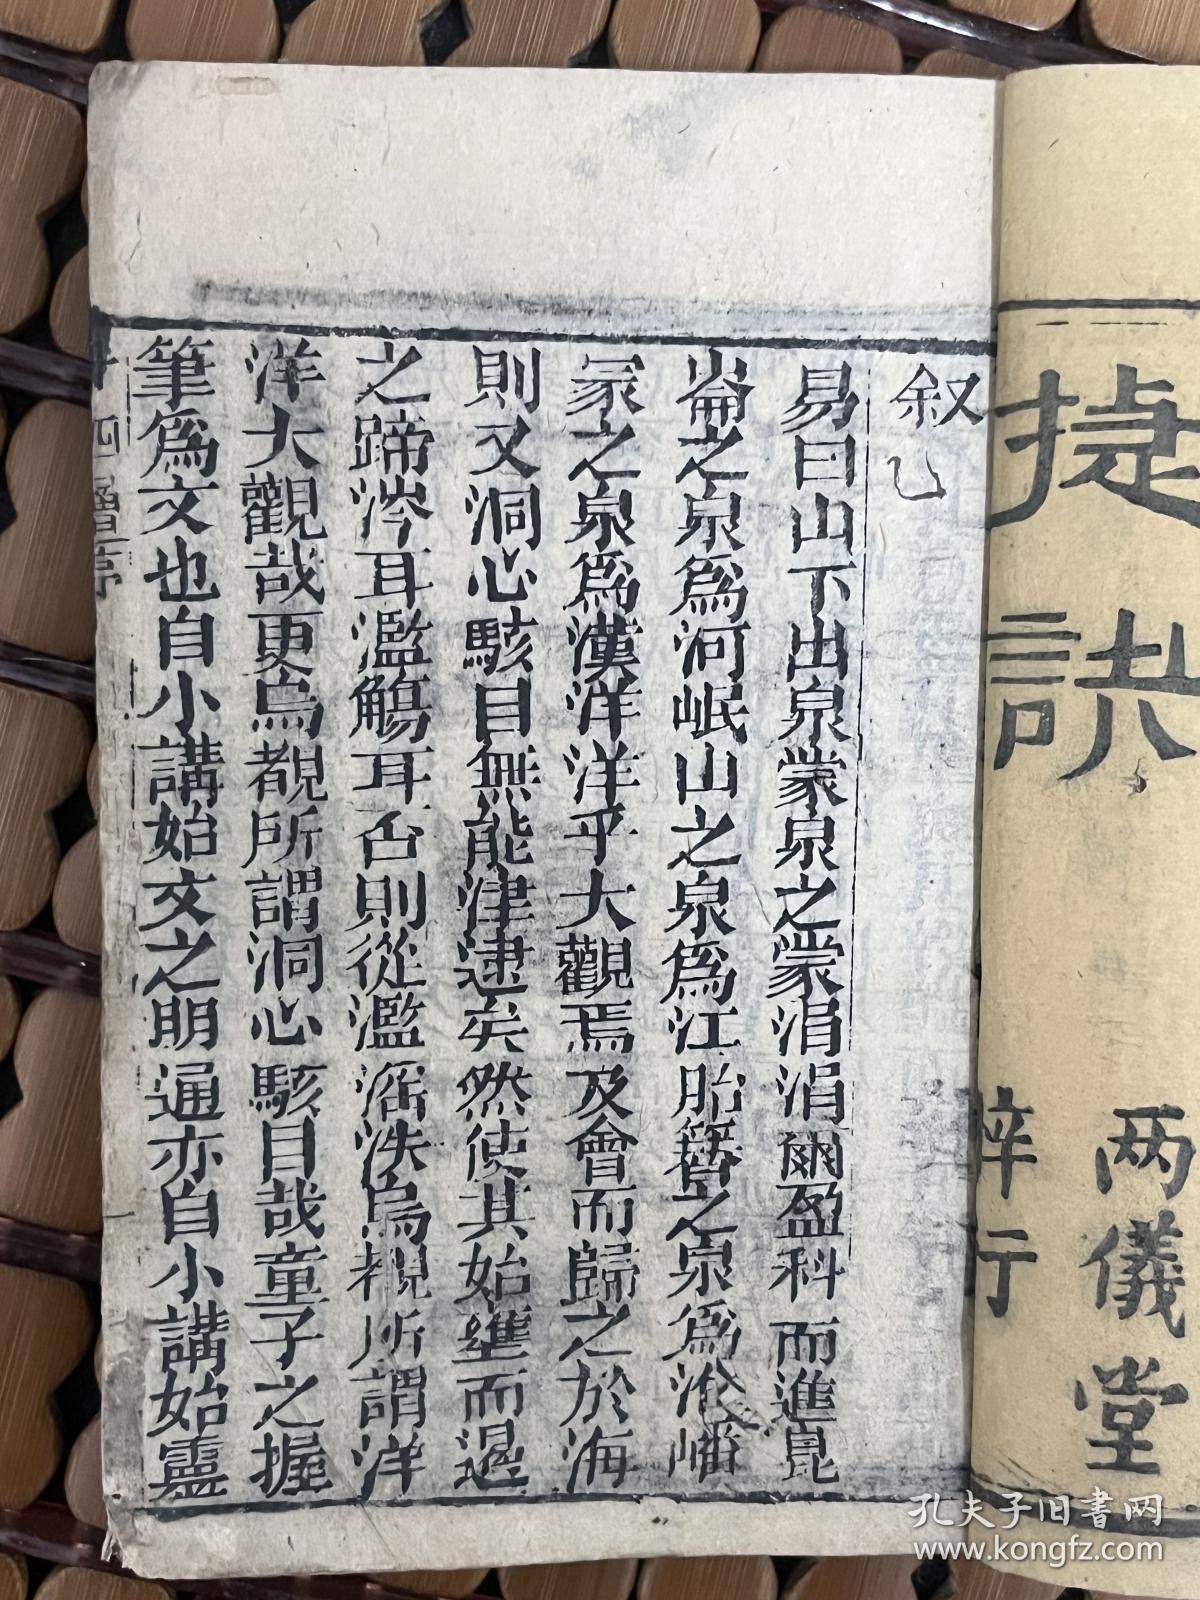 捷訣
两儀堂
梓行
叙
易曰山下出泉蒙泉之蒙涓涓爾盈科而進崑
崙之泉爲河岷山之泉爲江胎簪之泉爲淮嶓
冢之泉爲漢洋洋乎大觀焉及會而歸之於海
則又洞心駭目無能津逮矣然使其始壅而遏
之蹄涔耳濫觴耳否則從濫滛泆烏覩所謂洋
洋大觀哉更烏覩所謂洞心駭目哉童子之握
筆爲文也自小講始文之明通亦自小講始靈
孔夫子旧书网
www.kongfz.com